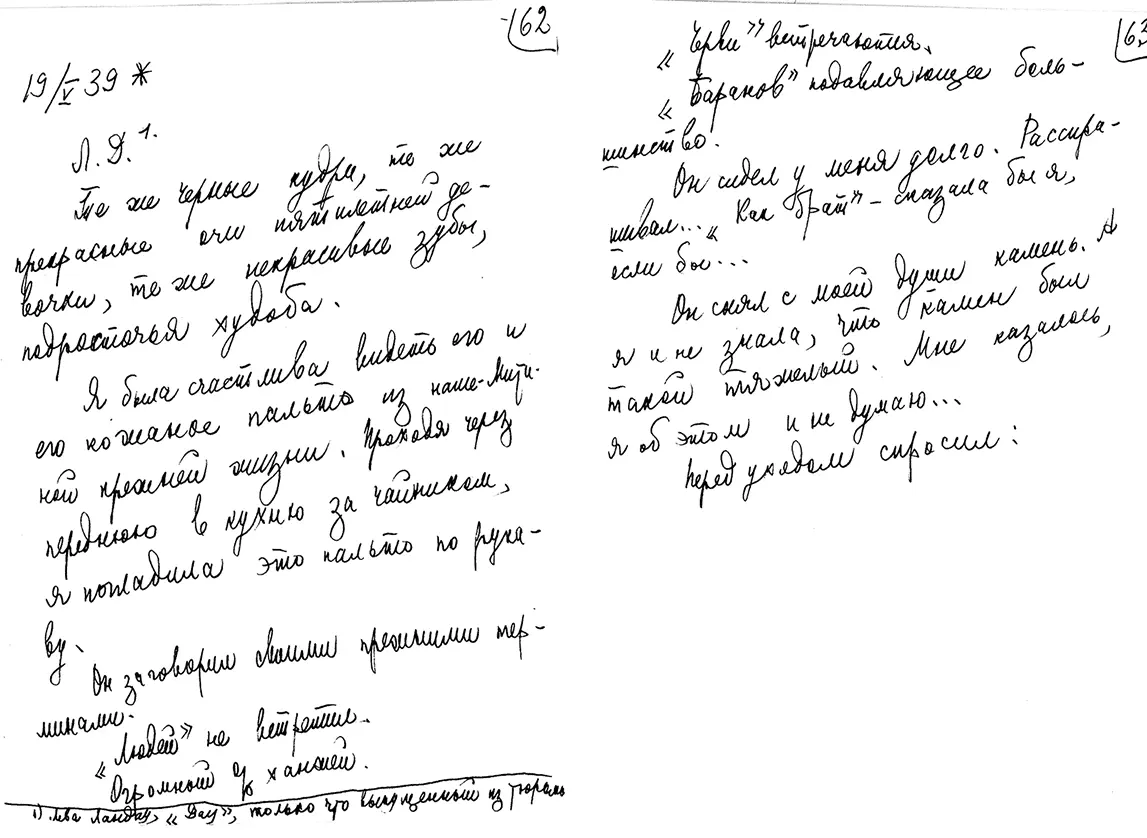 162
19/V 39 *
Л. Д.¹.
Те же черные кудри, те же
прекрасные очи пятилетней де-
вочки, те же некрасивые зубы,
подросточья худоба.
Я была счастлива видеть его и
его кожаное пальто из наше-Мити-
ной прежней жизни. Проходя через
переднюю в кухню за чайником,
я погладила это пальто по рука-
ву.
Он заговорил своими прежними тер-
минами.
«Людей» не встретил.
Огромный % ханжей.
1) Лева Ландау, «Дау», только что выпущенный из тюрьмы
163
«Черви» встречаются.
«Баранов» подавляющее боль-
шинство.
Он сидел у меня долго. Расспра-
шивал... «Как брат» – сказала бы я,
если бы...
Он снял с моей души камень. А
я и не знала, что камен был
такой тяжелый. Мне казалось,
я об этом и не думаю...
Перед уходом спросил: